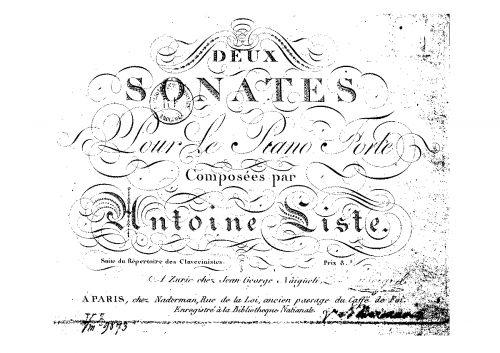 DEUX
SONATES
Pour Le Piano Forte
Composées par
Antoine Liste.
Suite du Répertoire des Clavecinistes. Prix 8.
A Zuric chez Jean George Naigueli.
À PARIS, chez Naderman, Rue de la Loi, ancien passage du Caffé de Foi.
Enregistré à la Bibliotheque Nationale.
Vm 9873